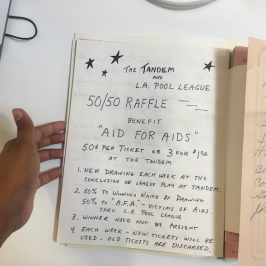 THE TANDEM
AND
L.A. POOL LEAGUE
50/50 RAFFLE
BENEFIT
"AID FOR AIDS"
50¢ PER TICKET OR 3 FOR $1.00
AT THE TANDEM
1. NEW DRAWING EACH WEEK AT THE
CONCLUSION OF LEAGUE PLAY AT TANDEM.
2. 50% TO WINNING NAME OF DRAWING
50% TO "A.F.A." - VICTIMS OF AIDS
THRU L.A. POOL LEAGUE
3. WINNER NEED NOT BE PRESENT
4. EACH WEEK - NEW TICKETS WILL BE
USED - OLD TICKETS ARE DISCARDED.